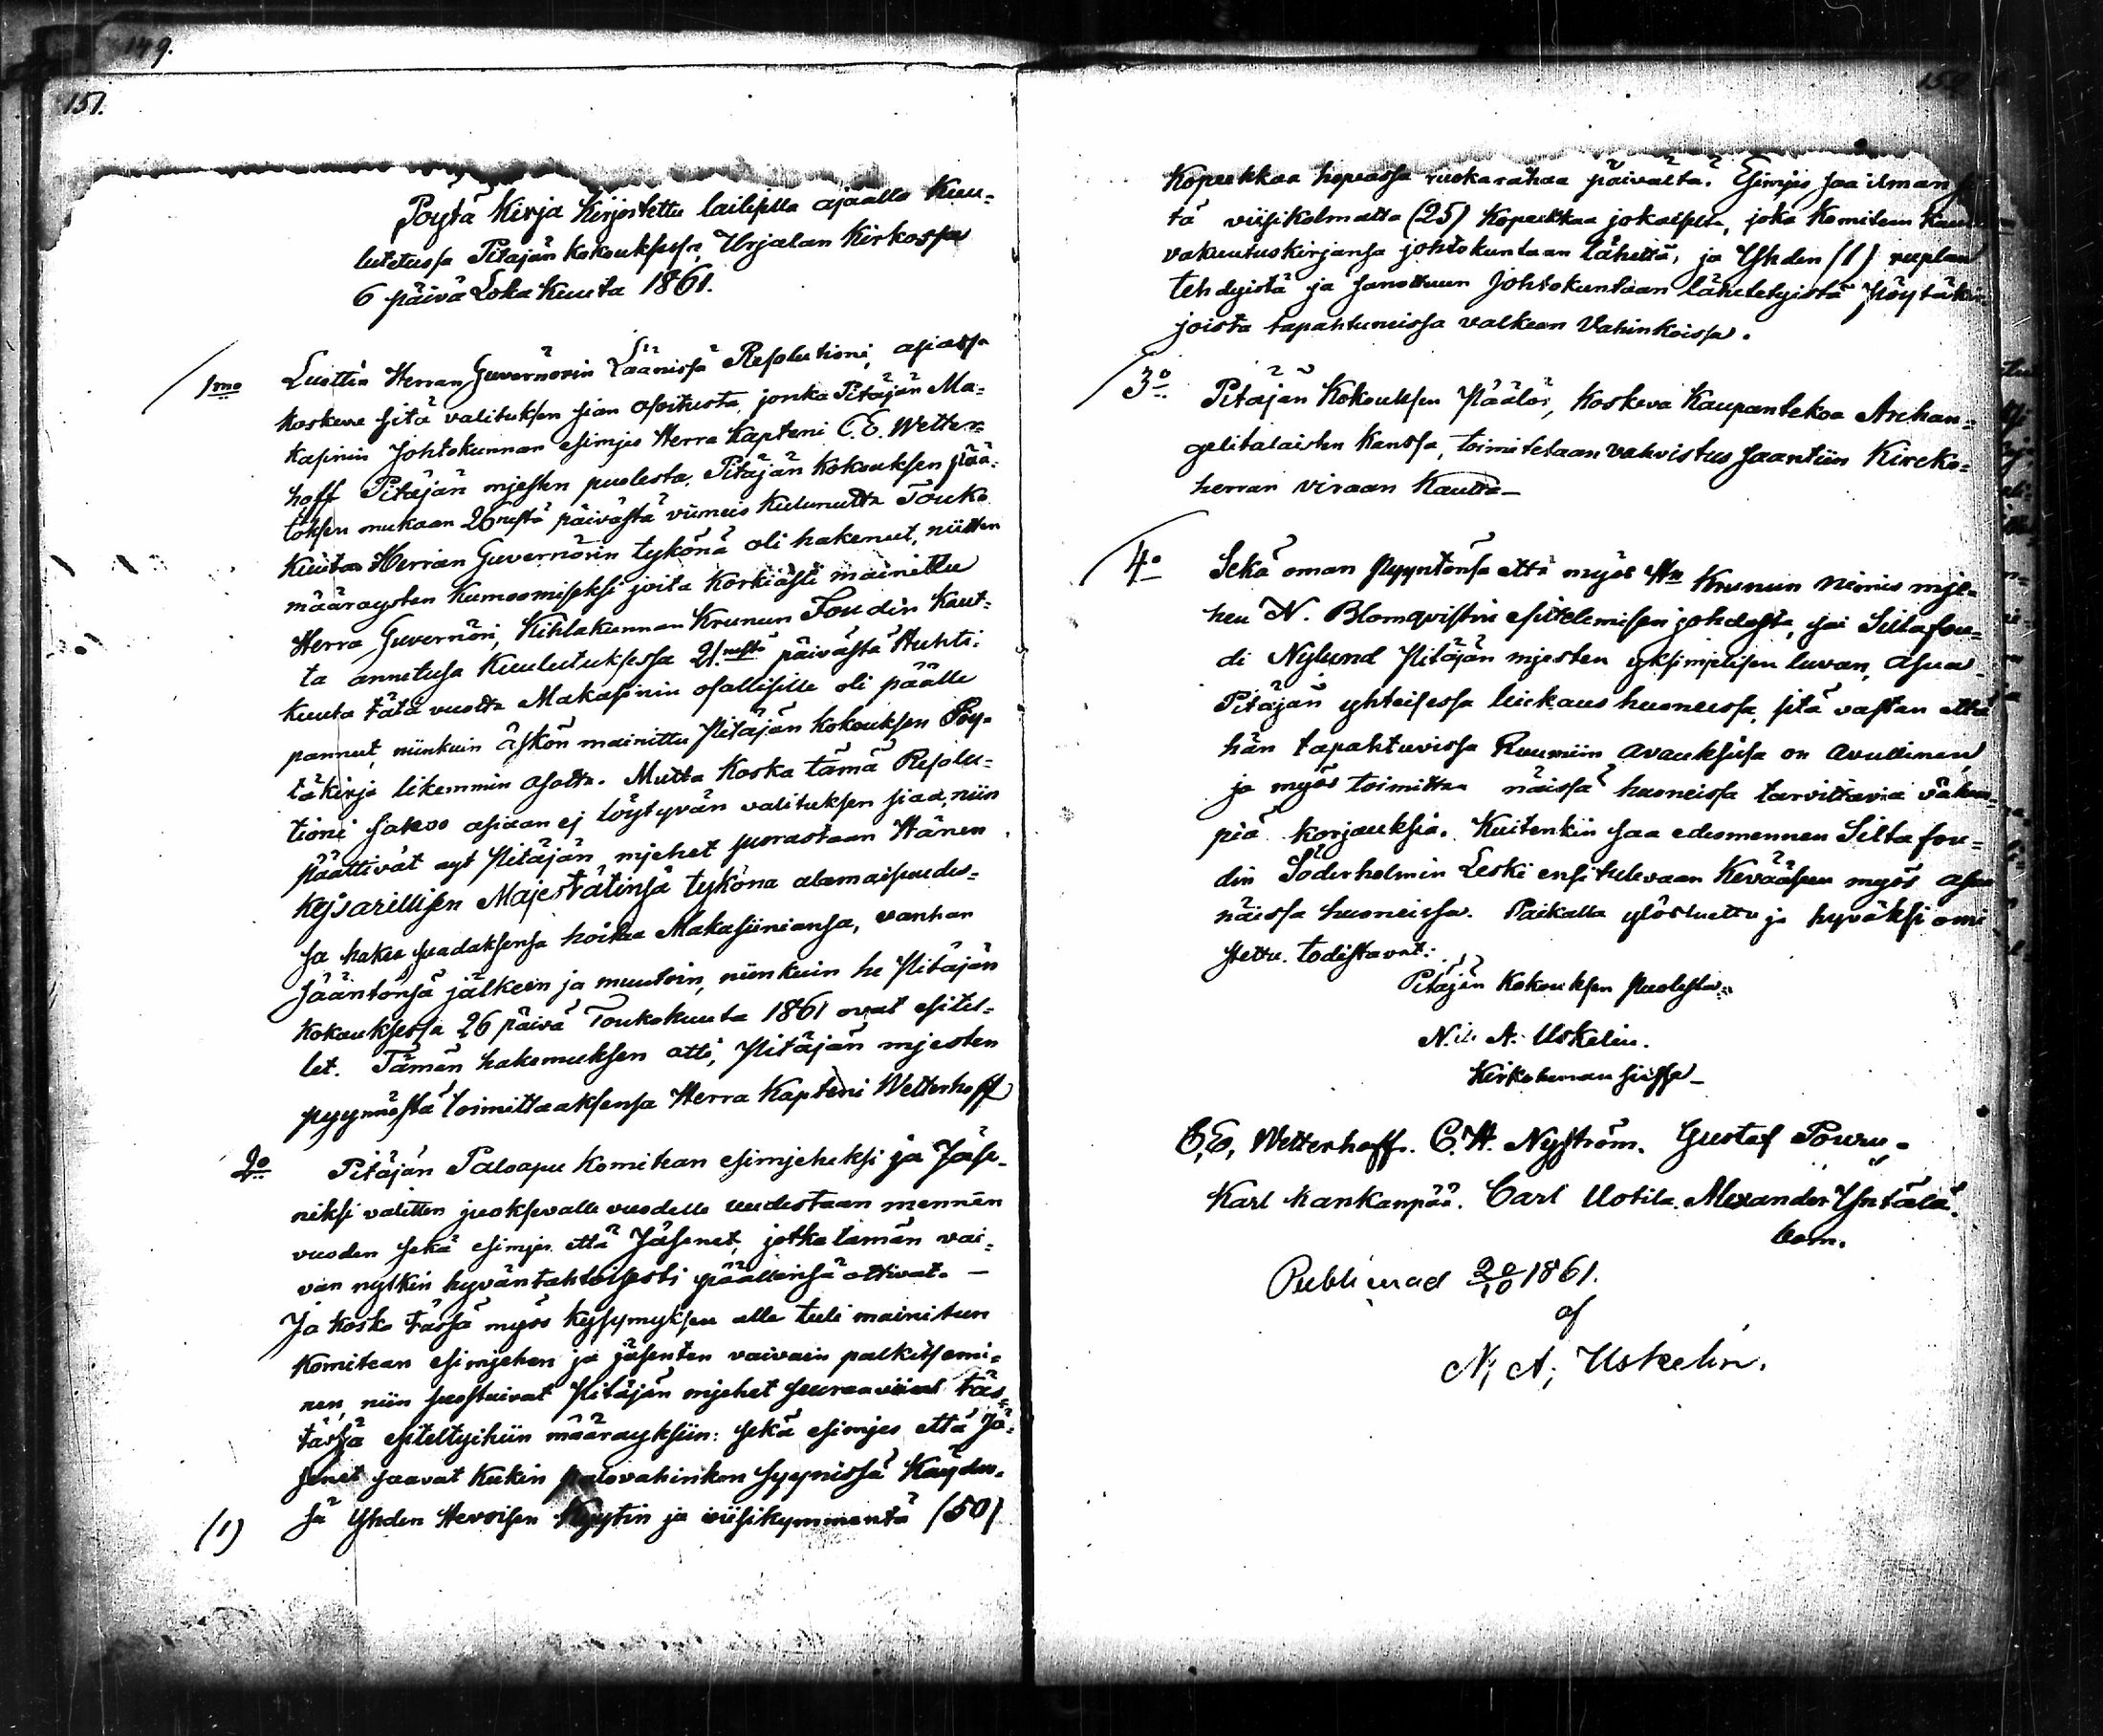 149.
151.
Pöytä Kirja Kirjoitettu lailisella ajaalla Kuu-
lutetussa Pitäjän kokouksessa, Urjalan Kirkossa
6 päivä Loka Kuuta 1861.
1mo Luettin Herran Guvernörin Läänissä Resolutioni, asiassa
koskeva sitä valituksen sian osoitusta, jonka Pitäjän Ma-
kasinin Johtokunnan esimjes Herra Kapteni C. E. Wetter-
hoff Pitäjän mjesten puolesta, Pitäjän Kokouksen pää-
töksen mukaan 26nestä päivästä viimeis kulunutta Touko
Kuuta Herran Guvernörin tykönä oli hakenut, niitten
määräysten kumoomiseksi joita korkiasti mainittu
Herra Guvernöri, Kihlakunnan Krunun Foudin kaut-
ta annetusa Kuulutuksessa 21.nestä päivästä Huhti-
kuuta tätä vuotta Makasinin osallisille oli päälle
pannut, niinkuin äskön mainittu Pitäjän kokouksen Pöy-
täkirja likemmin osotta. Mutta koska tämä Resolu-
tioni sanoo asiaan ej löytyvän valituksen siaa, niin
päättivät nyt Pitäjän mjehet suorastaan Hänen
Kejsarillisen Majestätinsä tykönä alamaisuudes-
sa hakea saadaksensa hoitaa Makasiiniansa, vanhan
Sääntönsä jälkeen ja muutoin, niinkuin he Pitäjän
kokouksessa 26 päivä Toukokuuta 1861 ovat esitel-
let. Tämän hakemuksen otti, Pitäjän mjesten
pyynnöstä toimittaaksensa Herra Kapteni Wetterhoff
2o Pitäjän Paloapu Komitean esimjeheksi ja Jäse-
niksi valittin juoksevalle vuodelle uudestaan mennen
vuoden sekä esimjes että Jäsenet, jotka tämän vai-
van nytkin hyväntahtoisesti päällensä ottivat. —
Ja koska tässä myös kysymyksen alle tuli mainitun
Komitean esimjehen ja jäsenten vaivain palkitsemi-
nen, niin suostuivat Pitäjän mjehet seuraaviin täs-
tässä esiteltyihiin määräyksiin: sekä esimjes että Jä-
senet saavat kukin palovahinkon syynissä käydes-
(1) sä Yhden Hevoisen Kyytin ja viisikymmentä (50)
Kopeekkaa hopeassa ruokarahaa päivältä. Esimjes saa ilman
tä viisikolmatta (25) kopeekkaa jokaiselta, joka Komitean
vakuutuskirjansa johtokuntaan lähettä, ja Yhden (1) ruplan
tehdyistä ja sanottuun Johtokuntaan lähetetyistä Pöytäkir-
joista tapahtuneissa valkean Vahinkoissa.
3o Pitäjän Kokouksen Päätös, koskeva Kaupantekoa Archan-
gelitalaisten kanssa, toimitetaan vahvistus saantiin Kircko-
herran viraan kautta —
4o Sekä oman Pyyntönsä että myös Hn Krunun Nimis mje-
hen N. Blomqvistin esittelemisen johdosta, sai Siltafou-
di Nylund Pitäjän mjesten yksimjelisen luvan, asua
Pitäjän yhteisessa leickaus huoneessa, sitä vastan että
hän tapahtuvissa Ruumiin avauksissa on avullinen,
ja myös toimittaa näissä huoneissa tarvittavia vähem-
piä korjauksia. Kuitenkin saa edesmennen Silta fou-
din Söderholmin Leski ensitulevaan Kevääsen myös asua
näissa huoneissa. Paikalla ylösluettu ja hyväksi omi
stettu. todistavat:
Pitäjän Kokouksen Puolesta.
N. A. Uskelin.
Kirkoherran siassa —
C. E. Wetterhoff. C. H. Nyström. Gustaf Pouru.
Karl Kankanpää. Carl Uotila. Alexander Yntälä.
Publicerad 20/10 1861.
af
N. A. Uskelin.